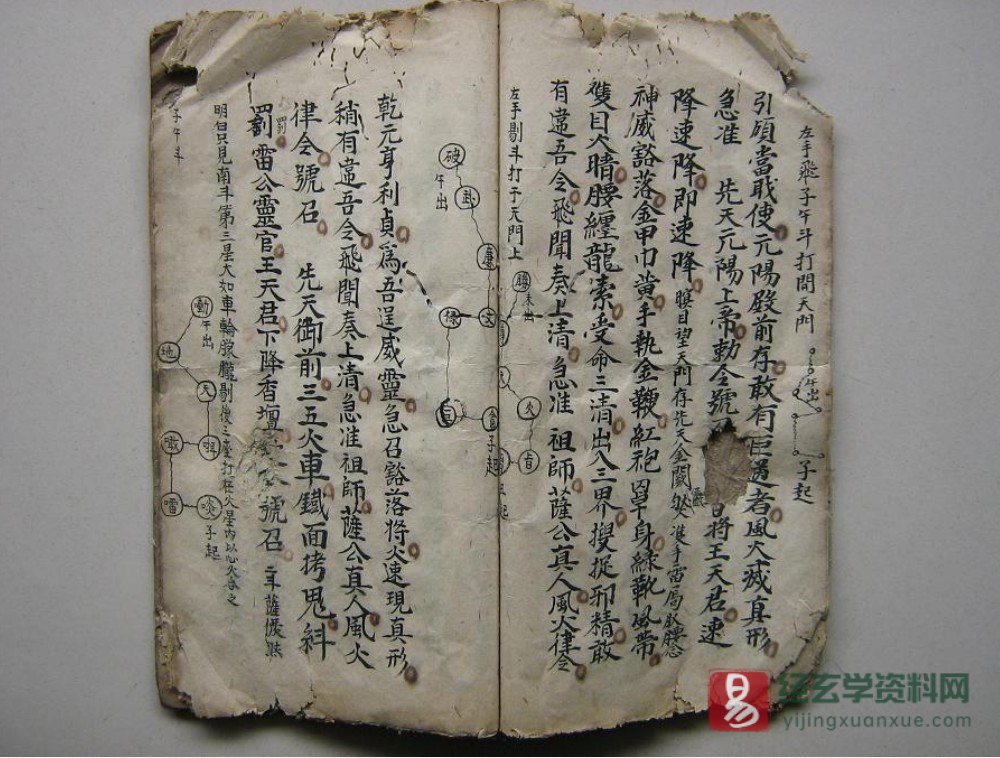 左手飛子午斗打開天門
午出
子起
引領當職使元陽殿前存敢有叵遇者風火滅真形
急准 先天元陽上帝勅令號
將王天君速
降速降即速降
瞑目望天門存先天金闕
神威豁落金甲巾黄手執金鞭紅袍罩身綠靴風帶
雙目火睛腰纏龍索受命三清出入三界搜捉邪精敢
有違吾令飛聞奏上清急准 祖師薩公真人風火律令
左手剔斗打于天門上
破
午出
武
廉
文
祿
巨
貪
子起
未出
乾元亨利貞為吾逞威靈急召豁落將火速現真形
稍有違吾令飛聞奏上清急准祖師薩公真人風火
律令號召 先天御前三五火車鐵面拷鬼糾
罰
罰雷公靈官王天君下降香壇
號召
明白只見南斗第三星大如車輪朦朧剔後
打在火星内以心火合之
午出
天
子起
子午斗
易
经玄学资料网
yijingxuanxue.com